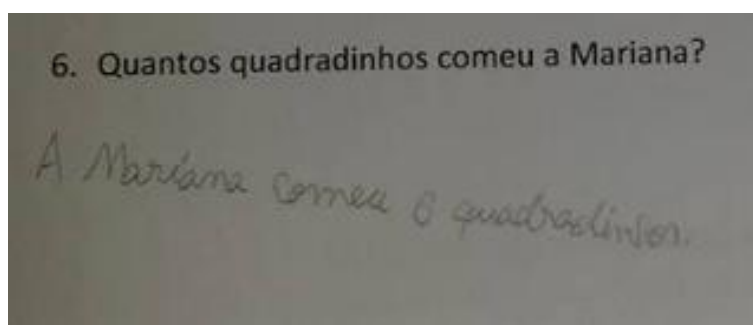 6. Quantos quadradinhos comeu a Mariana?
A Mariana comeu 6 quadradinhos.